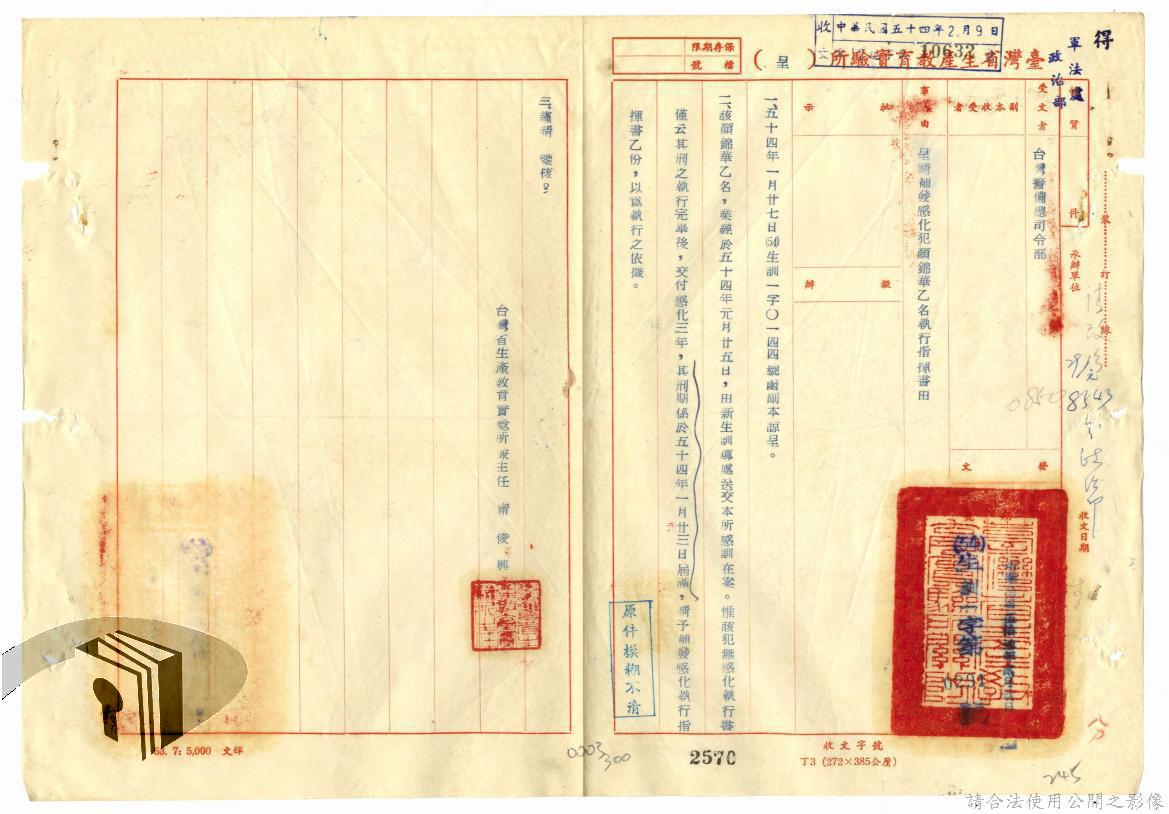 得
軍法處
政治部
收文 中華民國五十四年2月9日
10633
保存期限
檔號
臺灣省生產教育實驗所（呈）
受文者
台灣警備總司令部
副本收受者
事由
呈請補發感化犯顏錦華乙名執行指揮書由
批示
擬辦
一、五十四年一月廿七日(54)生訓一字〇一四四號函副本諒呈。
二、該顏錦華乙名，業經於五十四年元月廿五日，由新生訓導處送交本所感訓在案。惟該犯無感化執行書
僅云其刑之執行完畢後，交付感化三年，其刑期係於五十四年一月廿三日屆滿，請予補發感化執行指
揮書乙份，以為執行之依據。
三、謹請 鑒核。
台灣省生產教育實驗所兼主任 甯俊興
原件模糊不清
承辦單位
收文日期
裝
訂
線
件
發文
(54)生訓一字第
收文字號
丁3 (272×385公厘)
2570
0003
300
53. 7: 5,000 文祥
245
請合法使用公開之影像